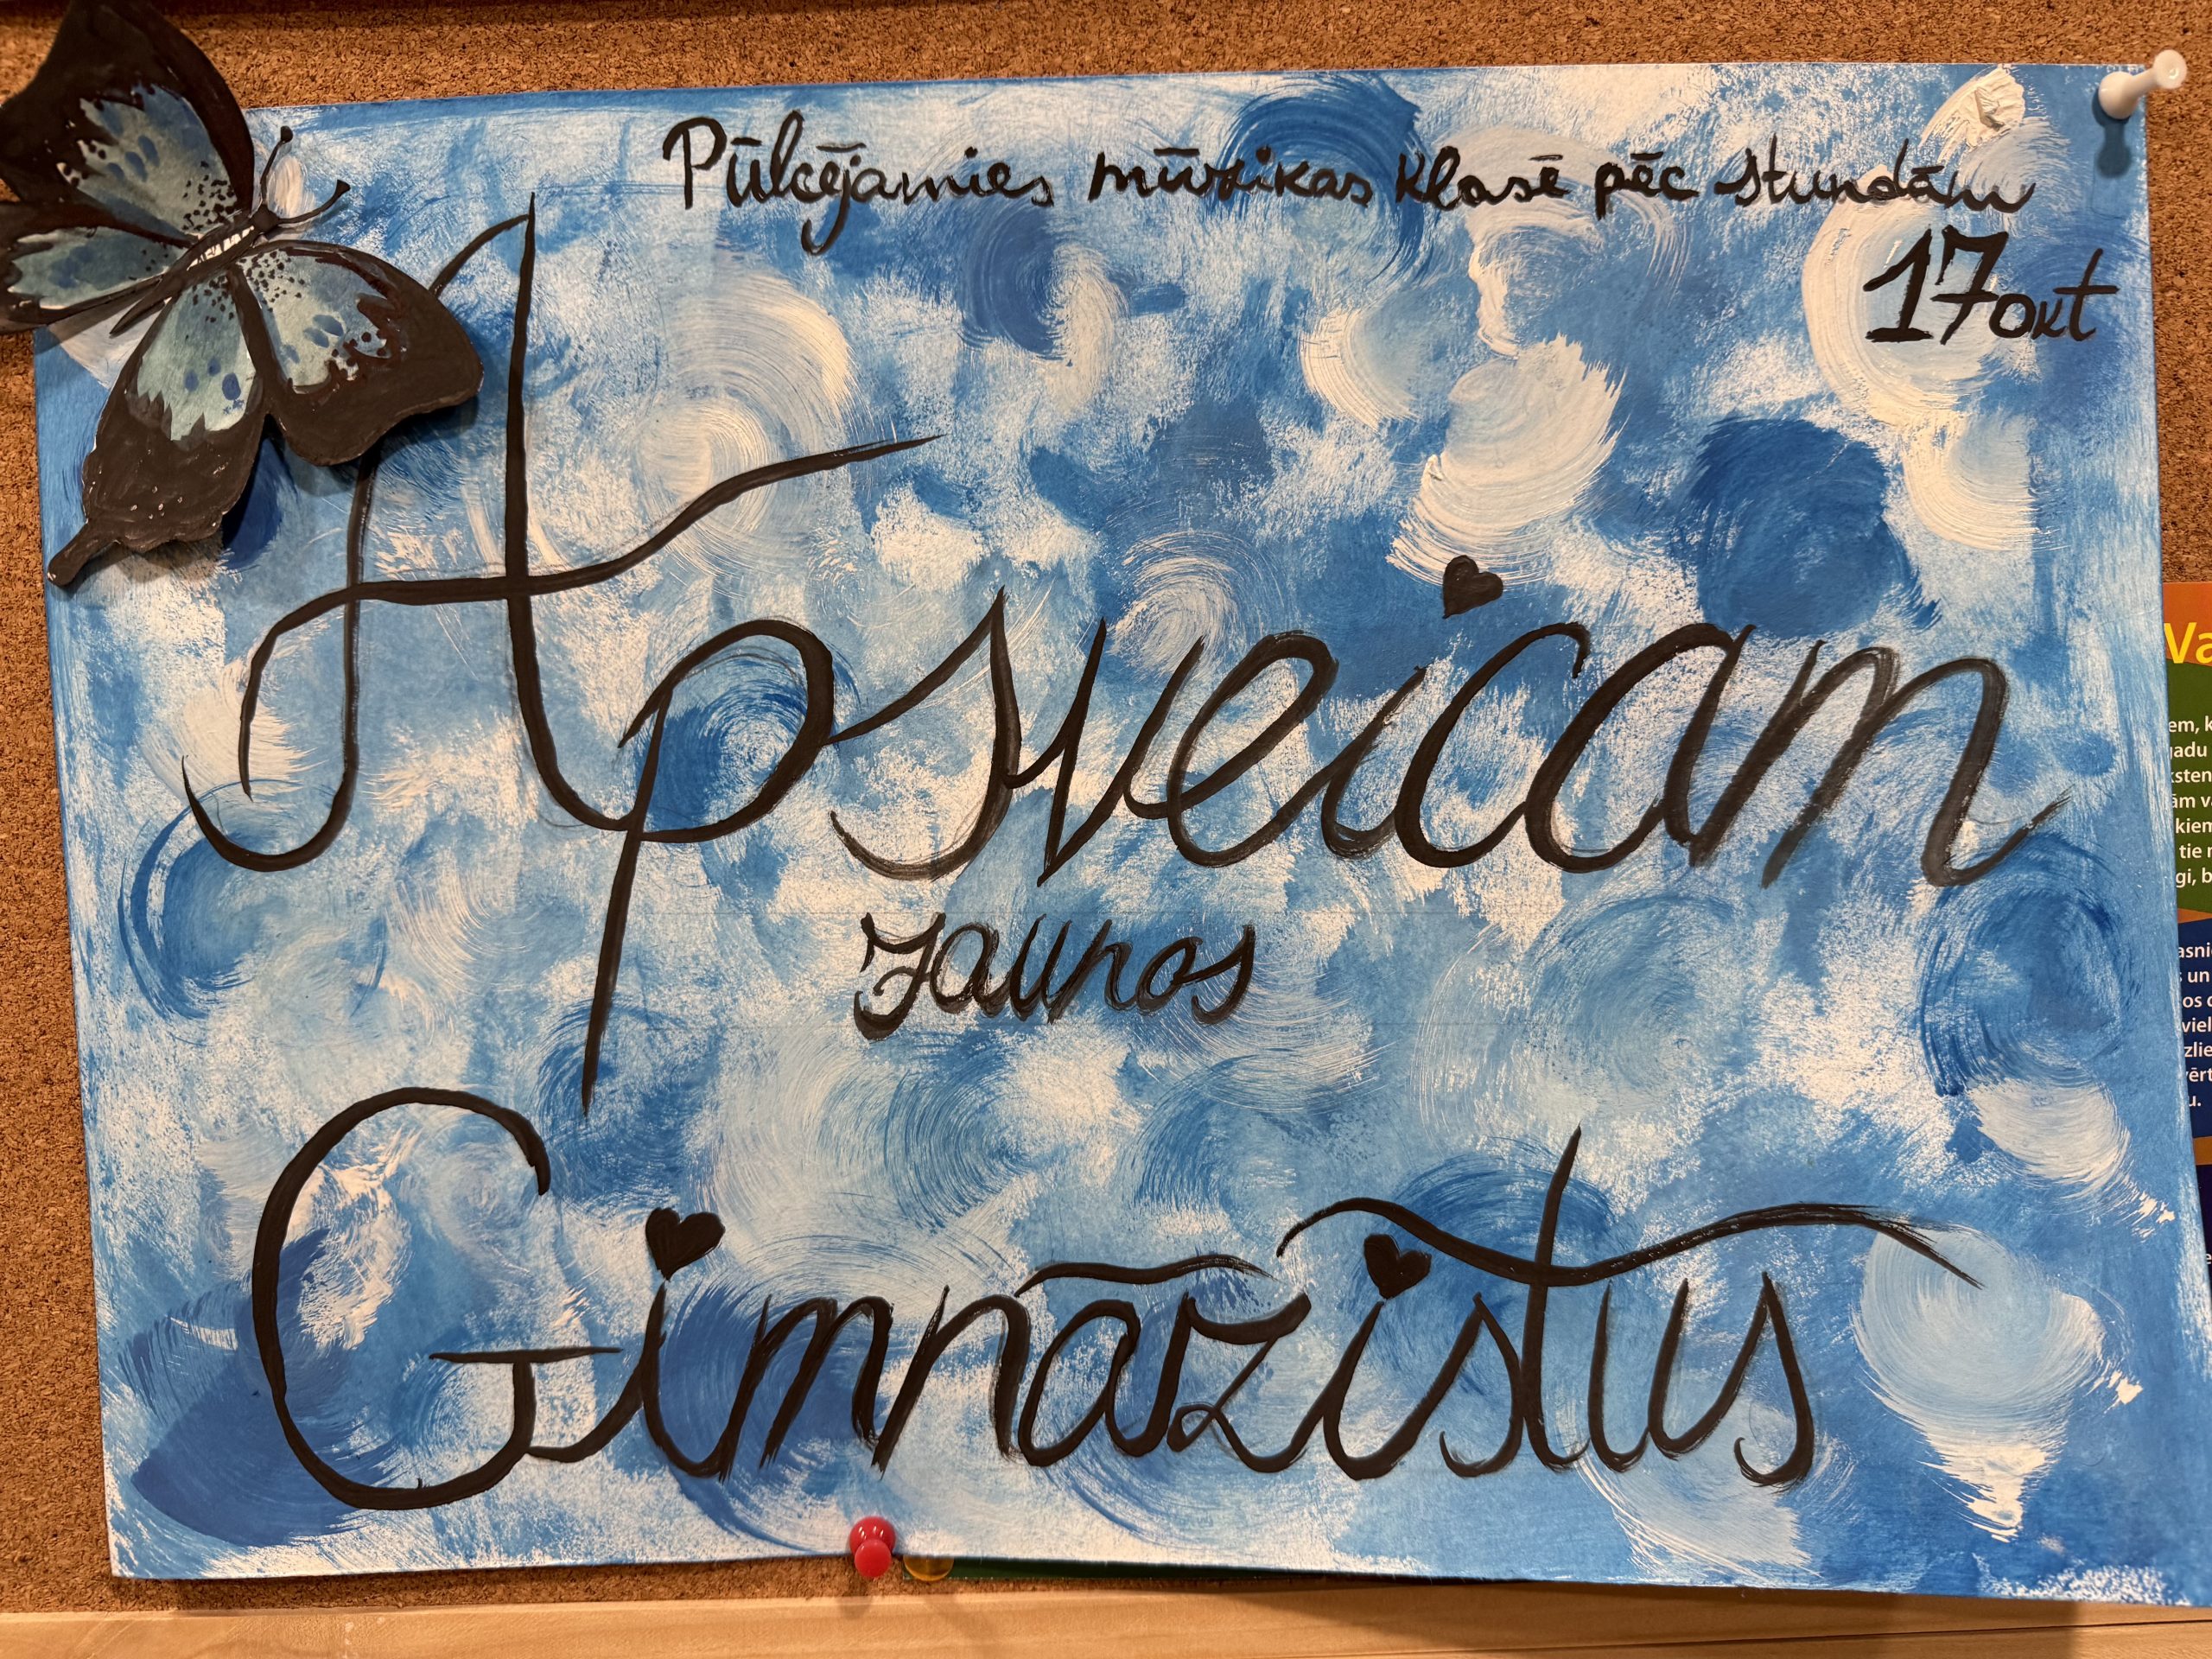 Pūlcējamies mūzikas klasē pēc stundām
17 okt
Apsveicam
jaunos
Gimnāzistus
Va
em, k
gadu
ksten
ām v
kiem
tie n
gi, b
asni
s un
os d
viel
zlie
vērt
u.